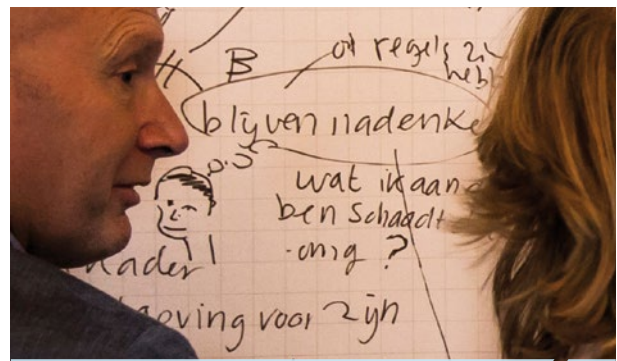 B
of regels zi
hebb
blijven nadenke
wat ik aan
ben schaadt
omg ?
kader
geving voor zijn